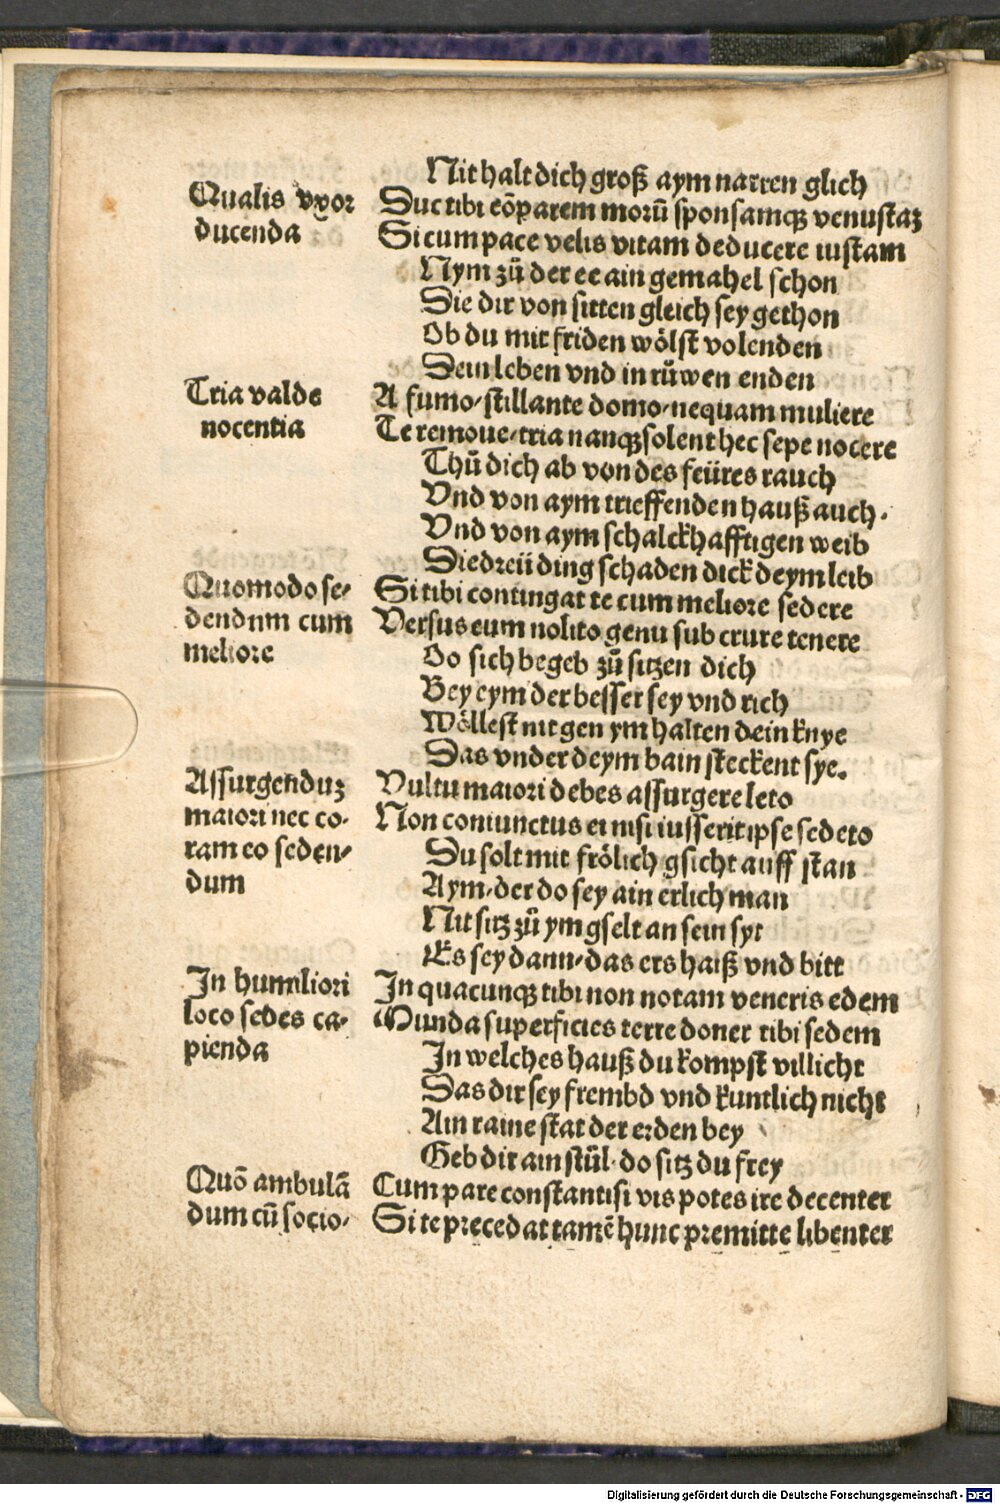 Nit halt dich groß aym narren glich
Qualis vxor
ducenda
Duc tibi cōparem morū sponsamqꝫ venustaꝫ
Si cum pace velis vitam deducere iustam
Nym zů der ee ain gemahel schon
Die dir von sitten gleich sey gethon
Ob du mit friden wölst volenden
Dein leben vnd in růwen enden
Tria valde
nocentia
A fumo/ stillante domo/ nequam muliere
Te remoue/ tria nanqꝫ solent hec sepe nocere
Thů dich ab von des feüres rauch
Vnd von aym trieffenden hauß auch.
Vnd von aym schalckhafftigen weib
Die dreii ding schaden dick deym leib
Quomodo se/
dendum cum
meliore
Si tibi contingat te cum meliore sedere
Versus eum nolito genu sub crure tenere
Do sich begeb zů sitzen dich
Bey eym der besser sey vnd rich
Wöllest nit gen ym halten dein knye
Das vnder deym bain steckent sye.
Assurgenduꝫ
maiori nec co-
ram eo seden/
dum
Vultu maiori debes assurgere leto
Non coniunctus ei nisi iusserit ipse sedeto
Du solt mit frölich gsicht auff stan
Aym/ der do sey ain erlich man
Nit sitz zů ym gselt an sein syt
Es sey dann/ das ers haiß vnd bitt
In humiliori
loco sedes ca-
pienda
In quacunqꝫ tibi non notam veneris edem
Munda superficies terre donet tibi sedem
In welches hauß du kompst villicht
Das dir sey frembd vnd kuntlich nicht
Ain raine stat der erden bey
Geb dir ain stůl. do sitz du frey
Quō ambulā
dum cū socio.
Cum pare constanti si vis potes ire decenter
Si te precedat tamē hunc premitte libenter
Digitalisierung gefördert durch die Deutsche Forschungsgemeinschaft - DFG